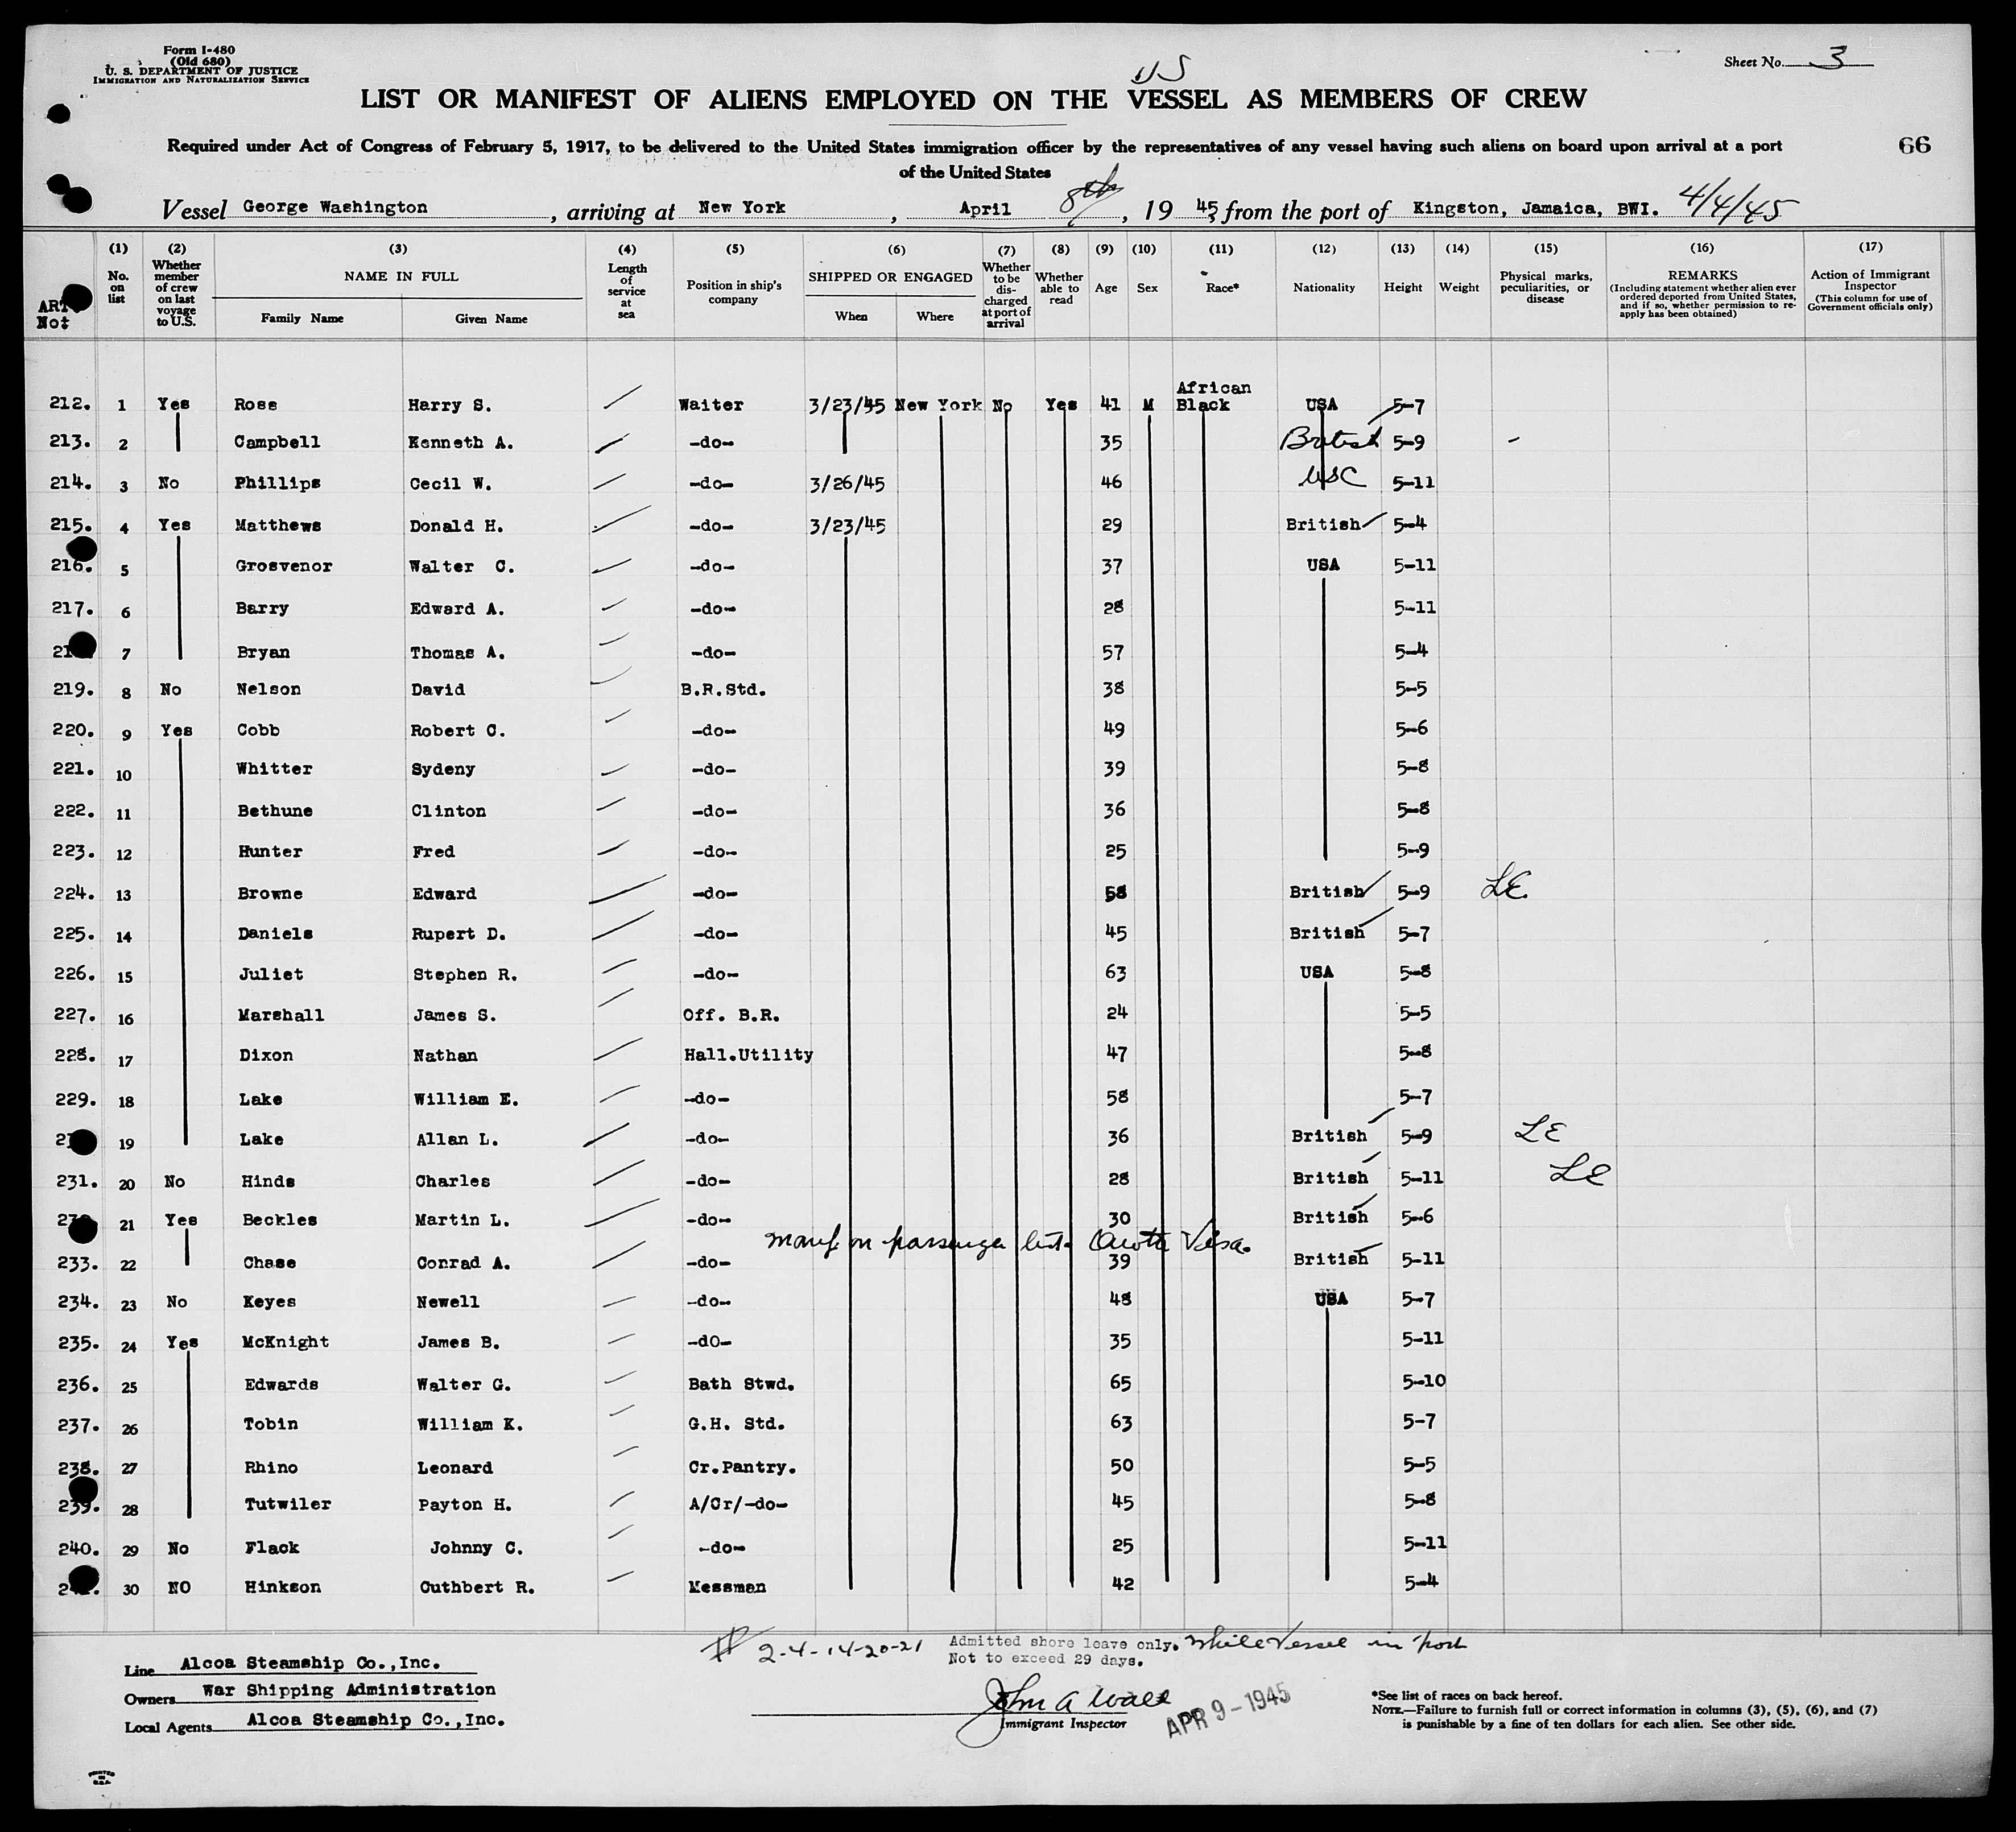 Form I-480
(Old 680)
U. S. DEPARTMENT OF JUSTICE
IMMIGRATION AND NATURALIZATION SERVICE
Sheet No. 3
US
LIST OR MANIFEST OF ALIENS EMPLOYED ON THE VESSEL AS MEMBERS OF CREW
Required under Act of Congress of February 5, 1917, to be delivered to the United States immigration officer by the representatives of any vessel having such aliens on board upon arrival at a port
of the United States
66
Vessel George Washington, arriving at New York, April 8th, 1945 from the port of Kingston, Jamaica, BWI. 4/4/45
(1) (2) (3) (4) (5) (6) (7) (8) (9) (10) (11) (12) (13) (14) (15) (16) (17)
ART Not
No. on list
Whether member of crew on last voyage to U.S.
NAME IN FULL
Family Name Given Name
Length of service at sea
Position in ship's company
SHIPPED OR ENGAGED
When Where
Whether to be discharged at port of arrival
Whether able to read
Age
Sex
Race*
Nationality
Height
Weight
Physical marks, peculiarities, or disease
REMARKS
(Including statement whether alien ever ordered deported from United States, and if so, whether permission to re-apply has been obtained)
Action of Immigrant Inspector
(This column for use of Government officials only)
212. 1 Yes Ross Harry S. Waiter 3/23/45 New York No Yes 41 M African Black USA 5-7
213. 2 Campbell Kenneth A. -do- 35 British 5-9 -
214. 3 No Phillips Cecil W. -do- 3/26/45 46 USC 5-11
215. 4 Yes Matthews Donald H. -do- 3/23/45 29 British 5-4
216. 5 Grosvenor Walter C. -do- 37 USA 5-11
217. 6 Barry Edward A. -do- 28 5-11
7 Bryan Thomas A. -do- 57 5-4
219. 8 No Nelson David B.R.Std. 38 5-5
220. 9 Yes Cobb Robert C. -do- 49 5-6
221. 10 Whitter Sydeny -do- 39 5-8
222. 11 Bethune Clinton -do- 36 5-8
223. 12 Hunter Fred -do- 25 5-9
224. 13 Browne Edward -do- 58 British 5-9 LE.
225. 14 Daniels Rupert D. -do- 45 British 5-7
226. 15 Juliet Stephen R. -do- 63 USA 5-8
227. 16 Marshall James S. Off. B.R. 24 5-5
228. 17 Dixon Nathan Hall.Utility 47 5-8
229. 18 Lake William E. -do- 58 5-7
19 Lake Allan L. -do- 36 British 5-9 LE
231. 20 No Hinds Charles -do- 28 British 5-11 LE
21 Yes Beckles Martin L. -do- 30 British 5-6
manf. on passenger list. Quota Visa.
233. 22 Chase Conrad A. -do- 39 British 5-11
234. 23 No Keyes Newell -do- 48 USA 5-7
235. 24 Yes McKnight James B. -dO- 35 5-11
236. 25 Edwards Walter G. Bath Stwd. 65 5-10
237. 26 Tobin William K. G.H. Std. 63 5-7
238. 27 Rhino Leonard Cr.Pantry. 50 5-5
239. 28 Tutwiler Payton H. A/Cr/-do- 45 5-8
240. 29 No Flack Johnny C. -do- 25 5-11
30 NO Hinkson Cuthbert R. Messman 42 5-4
# 2-4-14-20-21 Admitted shore leave only. While Vessel in port
Not to exceed 29 days.
Line Alcoa Steamship Co.,Inc.
Owners War Shipping Administration
Local Agents Alcoa Steamship Co.,Inc.
John A Wall
Immigrant Inspector
APR 9-1945
*See list of races on back hereof.
NOTE.—Failure to furnish full or correct information in columns (3), (5), (6), and (7)
is punishable by a fine of ten dollars for each alien. See other side.
PRINTED IN U.S.A.